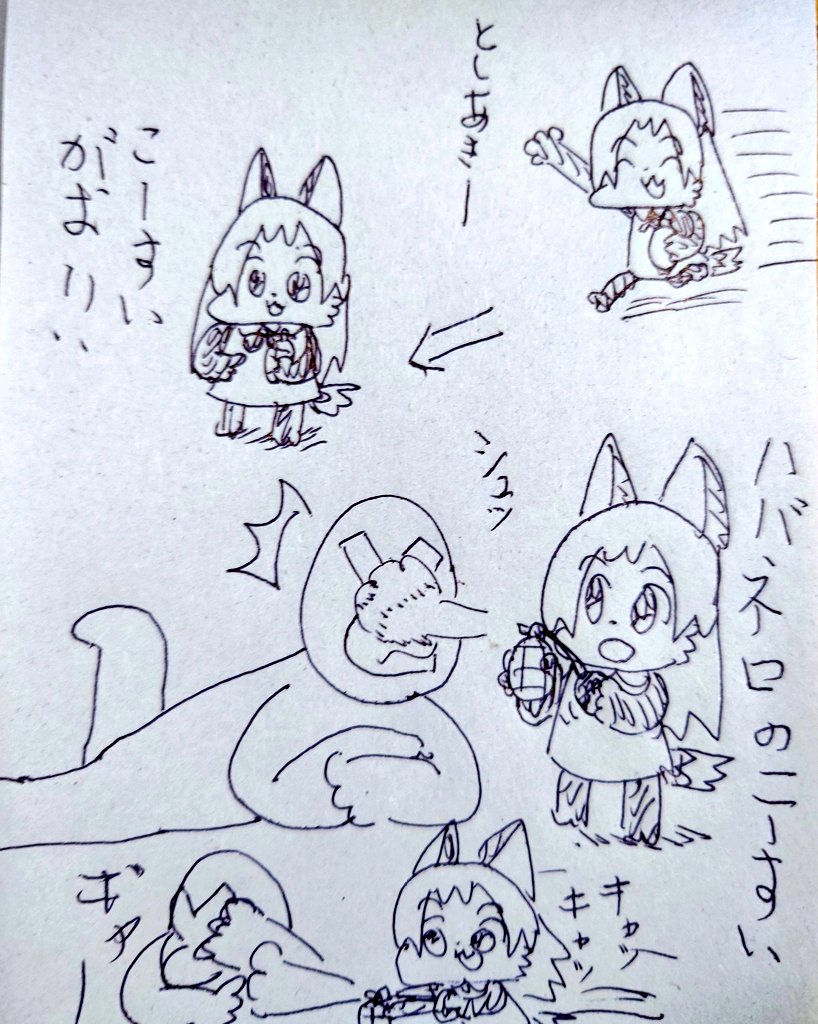 としあきー
こーすい
がお!!
シュッ
ハバネロのこーすい
キャッ
キャッ
ギャ